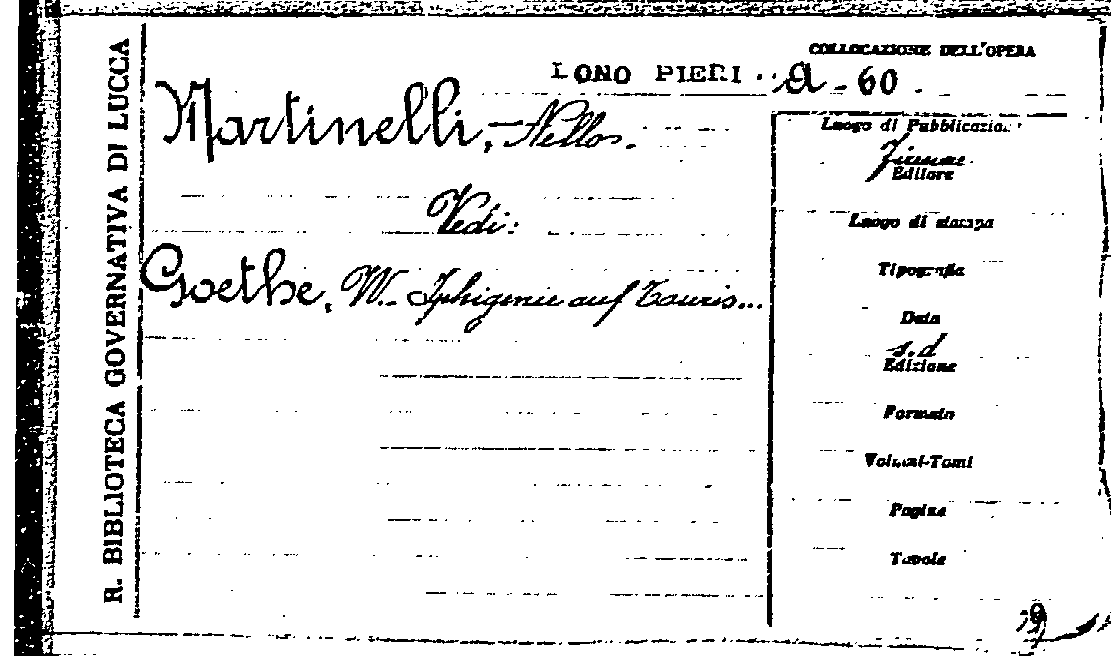 R. BIBLIOTECA GOVERNATIVA DI LUCCA
COLLOCAZIONE DELL'OPERA
DONO PIERI .. A - 60 .
Martinelli, Nello.
Vedi:
Goethe, W. - Iphigenie auf Tauris...
Luogo di Pubblicazione
Firenze
Editore
Luogo di stampa
Tipografia
Data
s.d
Edizione
Formato
Volumi-Tomi
Pagine
Tavole